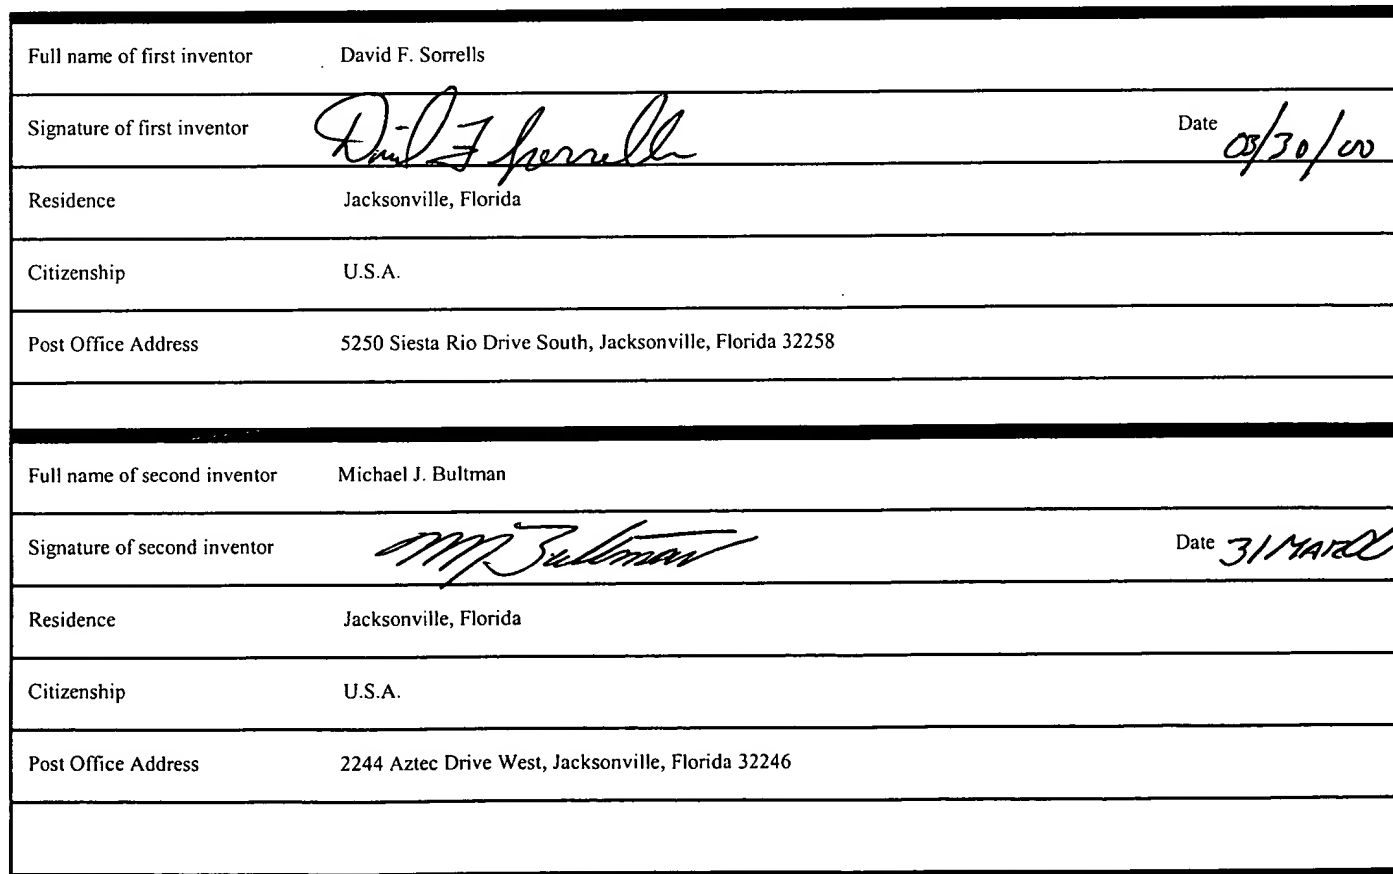 Full name of first inventor David F. Sorrells
Signature of first inventor David F Sorrells Date 03/30/00
Residence Jacksonville, Florida
Citizenship U.S.A.
Post Office Address 5250 Siesta Rio Drive South, Jacksonville, Florida 32258
Full name of second inventor Michael J. Bultman
Signature of second inventor MJ Bultman Date 31 MAR
Residence Jacksonville, Florida
Citizenship U.S.A.
Post Office Address 2244 Aztec Drive West, Jacksonville, Florida 32246